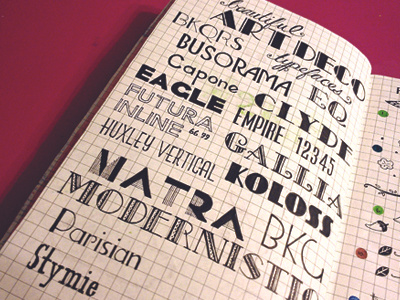 beautiful
ART DECO
typefaces
BKQRS
BUSORAMA
Capone
EQ
EAGLE
CLYDE
FUTURA
INLINE 66,99
EMPIRE 12345
HUXLEY VERTICAL
GALLIA
KOLOSS
MATRA
BKG
MODERNISTIC
Parisian
Stymie